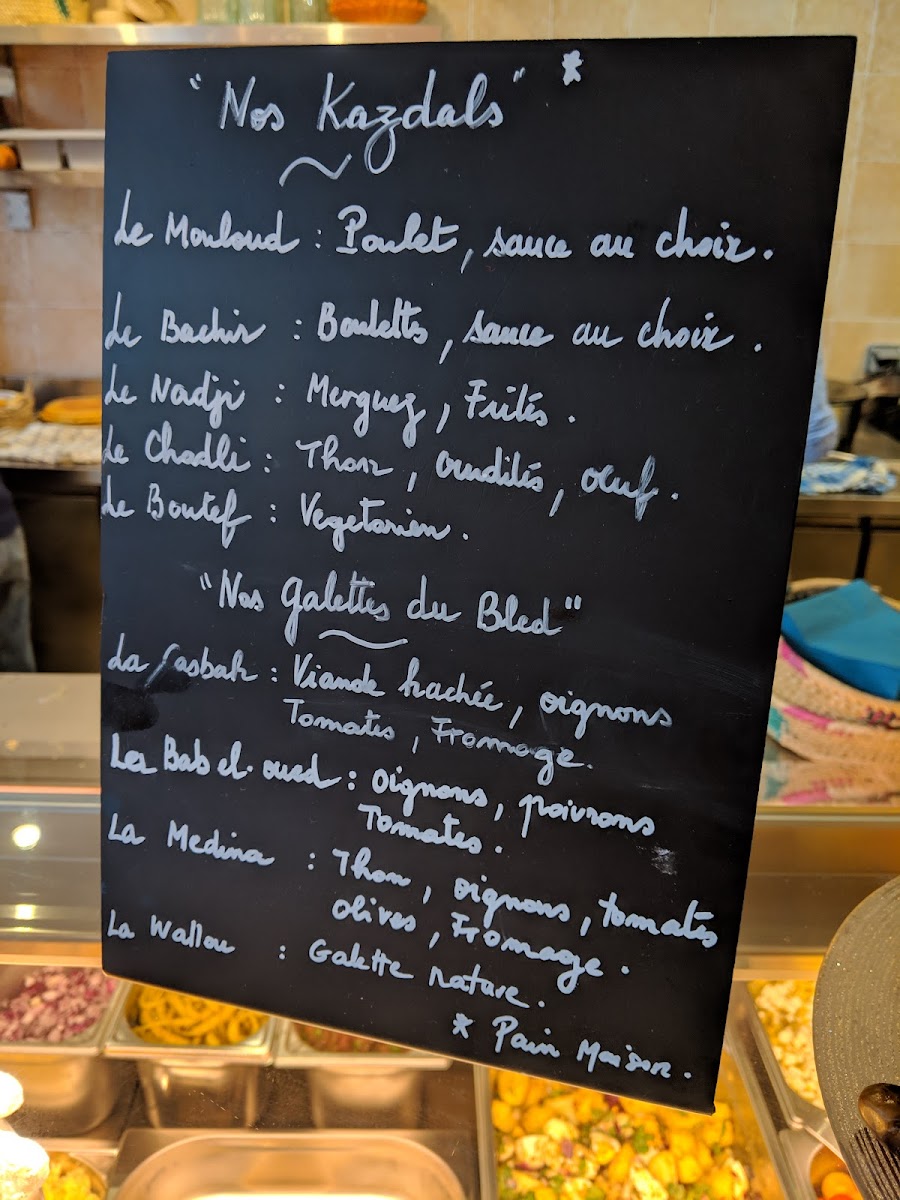 "Nos Kazdals" *
Le Mouloud : Poulet, sauce au choix.
Le Bachir : Boulettes, sauce au choix.
Le Nadji : Merguez, Frites.
Le Chadli : Thon, crudités, oeuf.
Le Boutef : Vegetarien.
"Nos galettes du Bled"
La Casbah : Viande hachée, oignons
Tomates, Fromage.
La Bab el-oued : oignons, poivrons
Tomates.
La Medina : Thon, oignons, tomates
olives, Fromage.
La Wallou : Galette nature.
* Pain Maison.